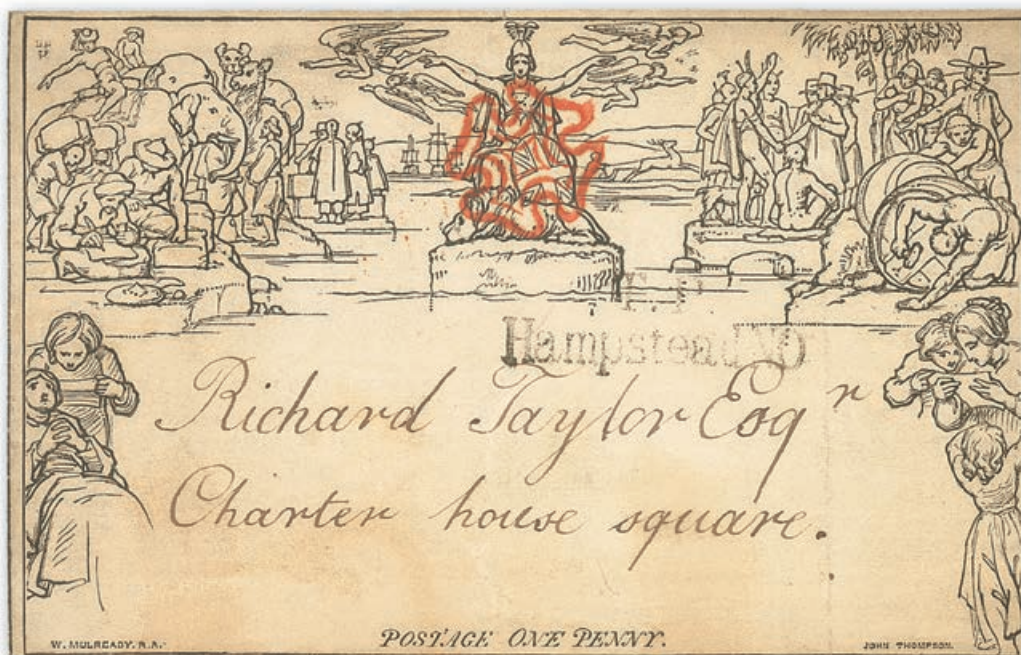 T.P
Hampstead NO
Richard Taylor Esqr
Charter house square.
W. MULREADY. R.A.
POSTAGE ONE PENNY.
JOHN THOMPSON.